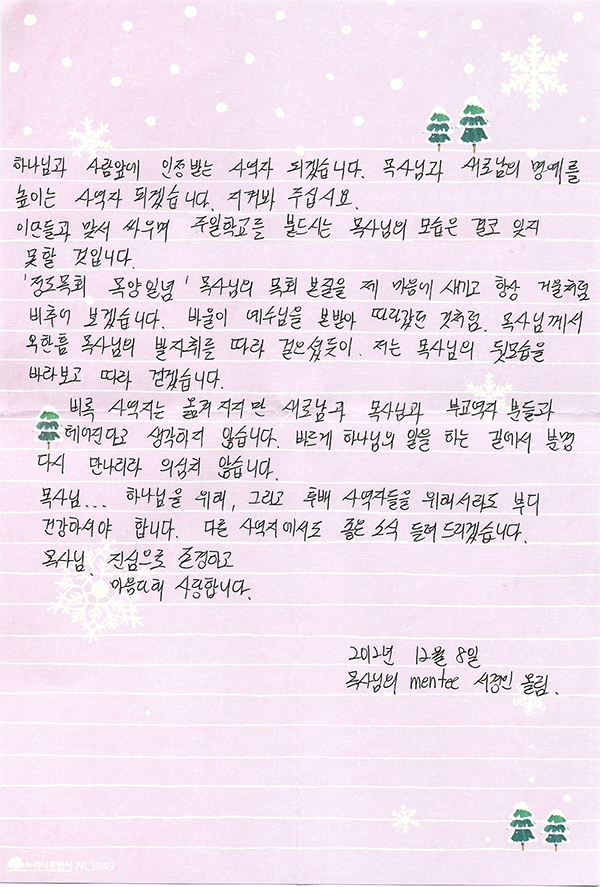 하나님과 사람앞에 인정받는 사역자 되겠습니다. 목사님과 새로남의 명예를
높이는 사역자 되겠습니다. 지켜봐 주십시요.
이단들과 맞서 싸우며 주일학교를 붙드시는 목사님의 모습은 결코 잊지
못할 것입니다.
'정도목회 목양일념' 목사님의 목회 본질을 제 마음에 새기고 항상 거울처럼
비추어 보겠습니다. 바울이 예수님을 본받아 따라갔던 것처럼. 목사님께서
옥한흠 목사님의 발자취를 따라 걸으셨듯이. 저는 목사님의 뒷모습을
바라보고 따라 걷겠습니다.
비록 사역지는 옮겨지지만 새로남과 목사님과 부교역자 분들과
헤어진다고 생각하지 않습니다. 바르게 하나님의 일을 하는 길에서 분명
다시 만나리라 의심치 않습니다.
목사님... 하나님을 위해, 그리고 후배 사역자들을 위해서라도 부디
건강하셔야 합니다. 다른 사역지에서도 좋은 소식 들려 드리겠습니다.
목사님. 진심으로 존경하고
마음다해 사랑합니다.
2012년 12월 8일
목사님의 mentee 서경인 올림.
NL3849